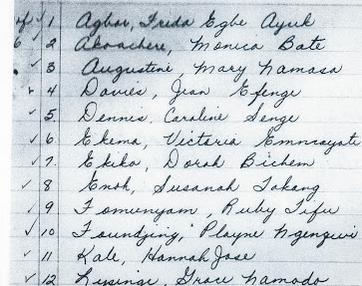 1 Agbor, Freda Egbe Ayuk
2 Akoachere, Monica Bate
3 Augustine, Mary Namasa
4 Davies, Jean Efenge
5 Dennis, Caroline Senge
6 Ekema, Victoria
7 Ekiko, Dorah Bichem
8 Enoh, Susanah Takang
9 Fomunyam, Ruby Tifu
10 Foundjing, Playne
11 Kale, Hannah Jose
12 Lysinge, Grace Namodo